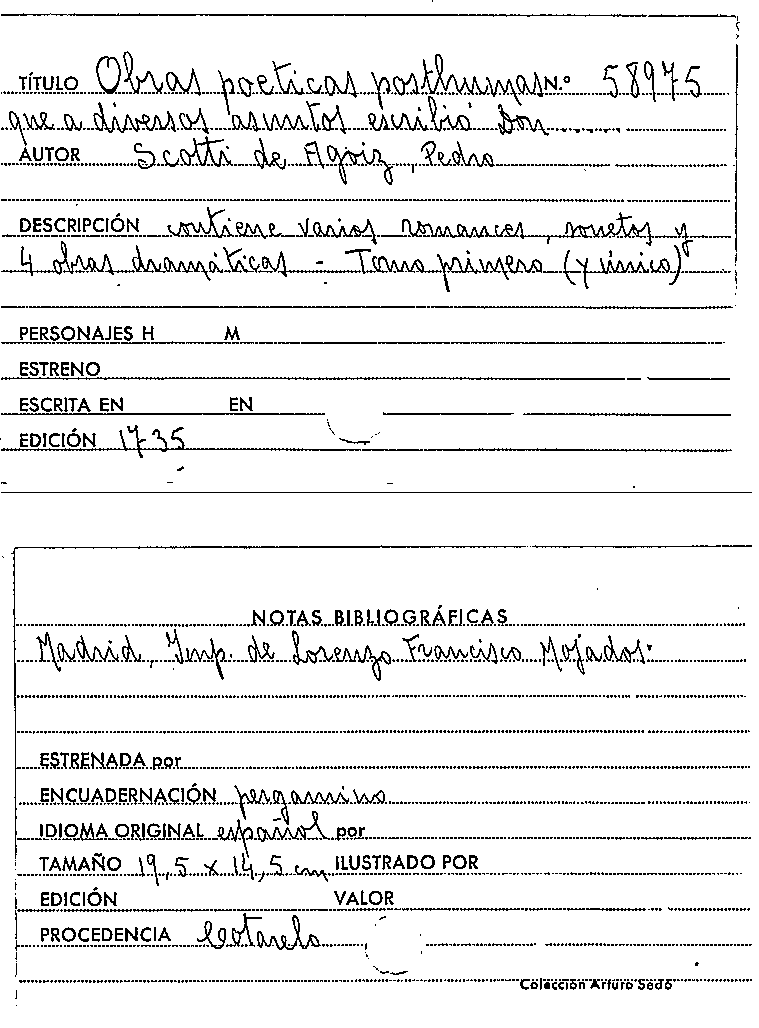 TÍTULO Obras poeticas posthumas N.º 58975
que a diversos asuntos escribió Don......
AUTOR Scotti de Agoiz, Pedro
DESCRIPCIÓN contiene varios romances, sonetos y
4 obras dramáticas - Tomo primero (y único)
PERSONAJES H M
ESTRENO
ESCRITA EN EN
EDICIÓN 1735
NOTAS BIBLIOGRÁFICAS
Madrid, Imp. de Lorenzo Francisco Mojados.
ESTRENADA por
ENCUADERNACIÓN pergamino
IDIOMA ORIGINAL español por
TAMAÑO 19,5 x 14,5 cm ILUSTRADO POR
EDICIÓN VALOR
PROCEDENCIA Cotarelo
Colección Arturo Sedó